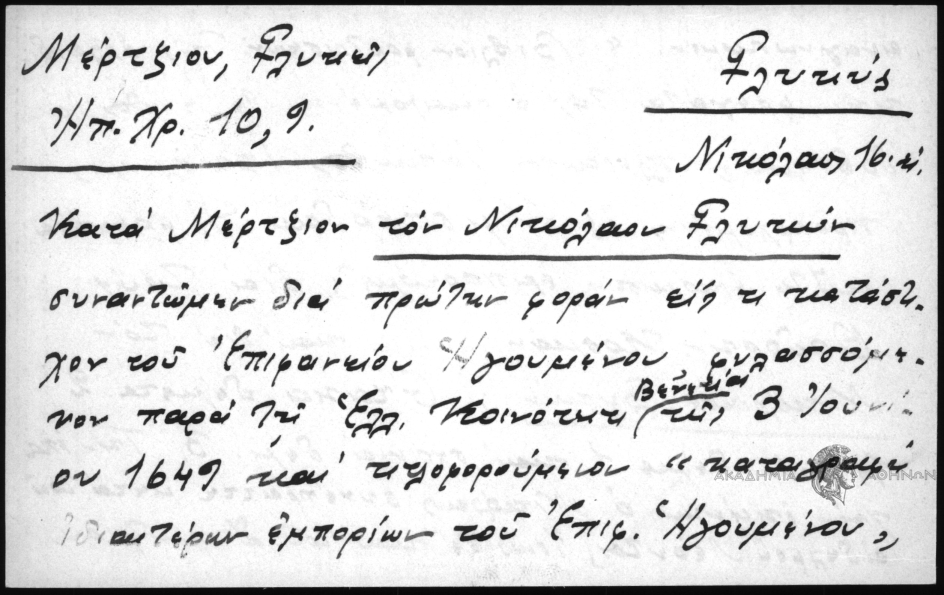 Μέρτζιου, Γλυκεῖς
Γλυκύς
Ἠπ. Χρ. 10, 9.
Νικόλαος 16. αἰ.
Κατά Μέρτζιον τόν Νικόλαον Γλυκύν
συναντῶμεν διά πρώτην φοράν εἰς τι κατάστι-
χον τοῦ Ἐπιφανείου Ἡγουμένου φυλασσόμε-
νον παρά τῇ Ἑλλ. Κοινότητι τῆς Βενετίας 3 Ἰουνί-
ου 1649 καί τιτλοφορούμενον "καταγραφή
ἰδιαιτέρων ἐμπορίων τοῦ Ἐπιφ. Ἡγουμένου"
ΑΚΑΔΗΜΙΑ ΑΘΗΝΩΝ